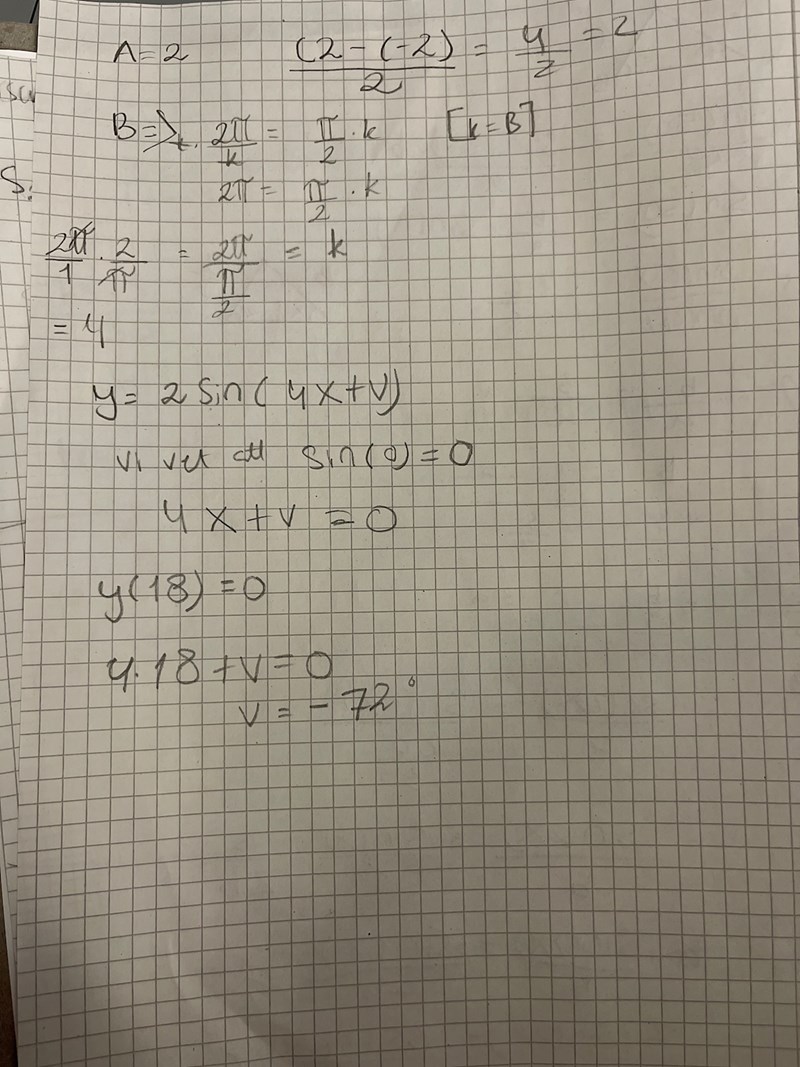 A=2 (2-(-2)/2 = 4/2 = 2
B=> k. 2π/k = π/2 · k [k=B]
2π = π/2 · k
2π/1 · 2/π = 2π/(π/2) = k
= 4
y= 2 sin( 4x+v)
vi vet att sin(0)=0
4x+v =0
y(18)=0
4·18+v=0
v=-72°